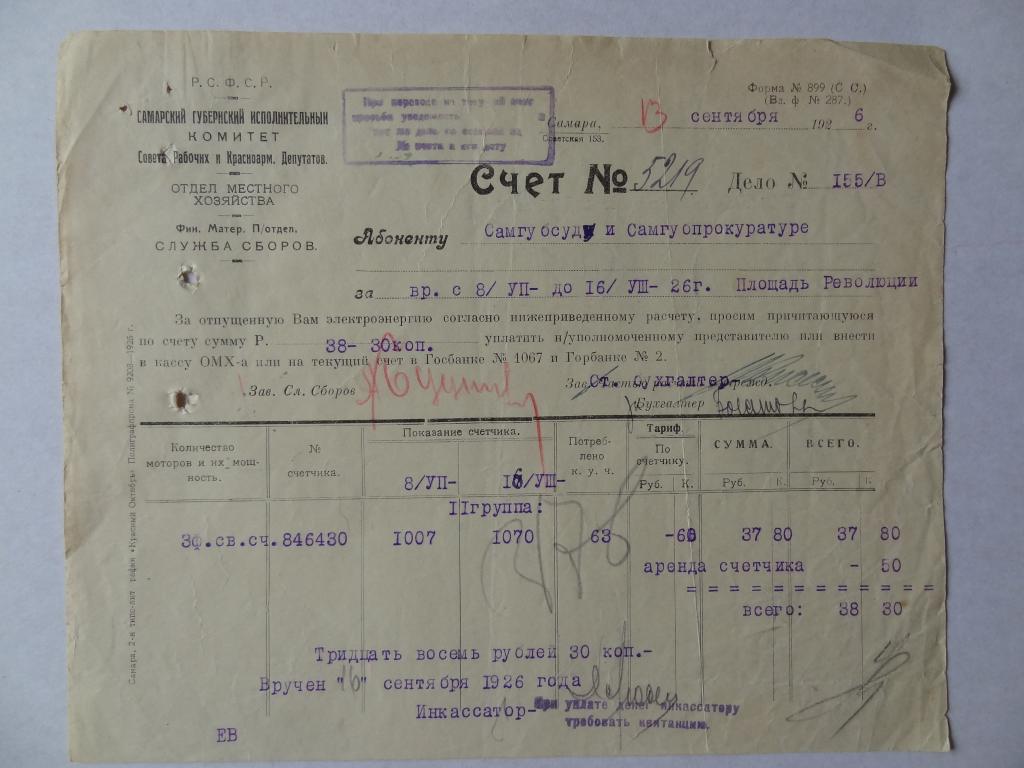 Р. С. Ф. С. Р.
САМАРСКИЙ ГУБЕРНСКИЙ ИСПОЛНИТЕЛЬНЫЙ
КОМИТЕТ
Совета Рабочих и Красноарм. Депутатов.
ОТДЕЛ МЕСТНОГО
ХОЗЯЙСТВА
Фин. Матер. П/отдел.
СЛУЖБА СБОРОВ.
При переводе на текущий счет
просьба уведомить
№ счета и его дату
Форма № 899 (С С.)
(Вл. ф № 287.)
Самара, 13 сентября 1926 г.
Советская 153.
Счет № 5219. Дело № 155/В
Абоненту Самгубсуду и Самгубпрокуратуре
за вр. с 8/ УП- до 16/ УШ- 26г. Площадь Революции
За отпущенную Вам электроэнергию согласно нижеприведенному расчету, просим причитающуюся
по счету сумму Р. 38- 30коп. уплатить н/уполномоченному представителю или внести
в кассу ОМХ-а или на текущий счет в Госбанке № 1067 и Горбанке № 2.
Зав. Сл. Сборов
Ст. бухгалтер
Бухгалтер
Количество моторов и их мощность.
№ счетчика.
Показание счетчика.
8/УП- 16/УШ-
Потреблено к. у. ч.
Тариф.
По счетчику.
Руб. К.
СУММА.
Руб. К.
ВСЕГО.
Руб. К
IIгруппа:
3ф.св.сч. 846430 1007 1070 63 -60 37 80 37 80
аренда счетчика - 50
= = = = = = = = = = = = = =
всего: 38 30
278
Тридцать восемь рублей 30 коп.-
Вручен "16" сентября 1926 года
Инкассатор-
При уплате денег инкассатору
требовать квитанцию.
ЕВ
Самара, 2-я типо-лит рафия «Красный Октябрь» Полиграфпрома № 9203—1926 г.